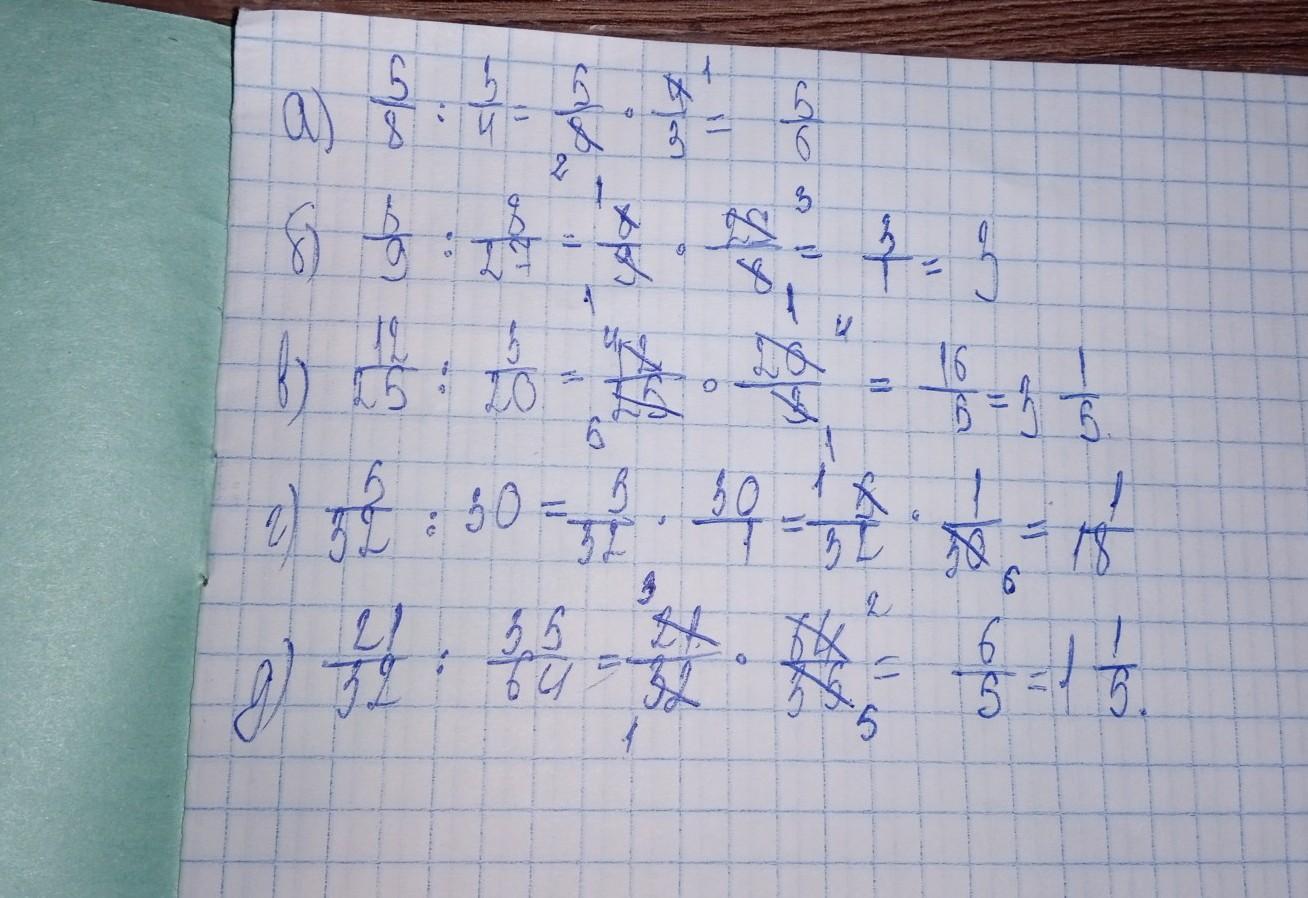 а) 5/8 : 3/4 = 5/8 · 4/3 = 5/6
б) 8/9 : 8/27 = 8/9 · 27/8 = 3/1 = 3
в) 12/25 : 3/20 = 12/25 · 20/3 = 16/5 = 3 1/5.
г) 5/32 : 30 = 5/32 · 30/1 = 5/32 · 1/30 = 1/18
д) 21/32 : 35/64 = 21/32 · 64/35 = 6/5 = 1 1/5.